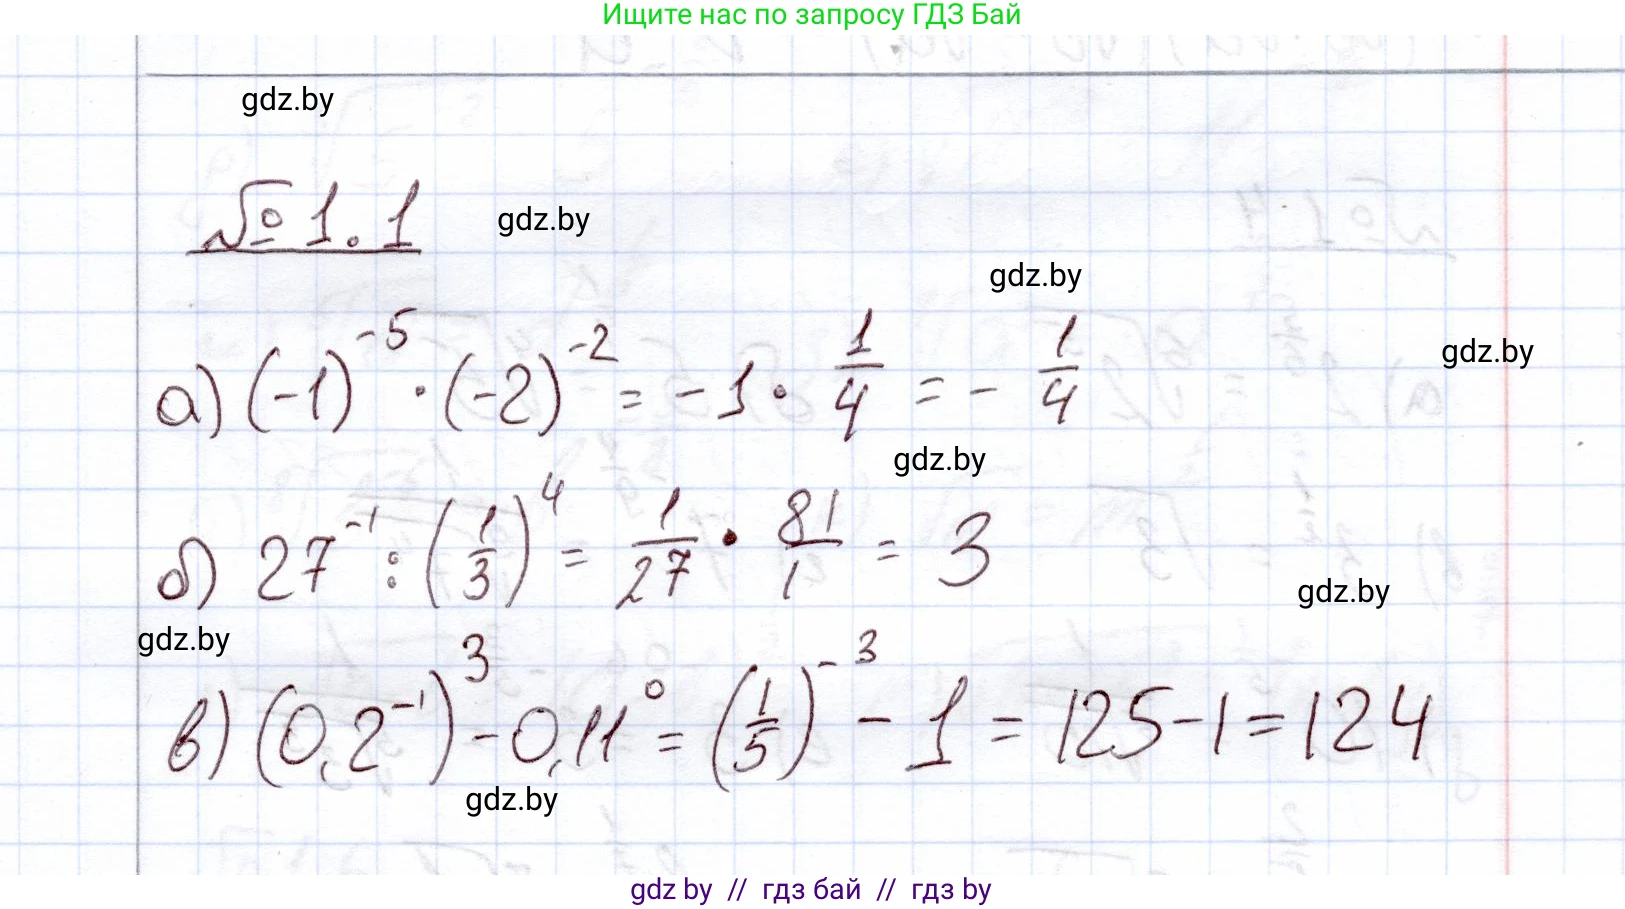 Ищите нас по запросу ГДЗ Бай
gdz.by
№ 1.1
gdz.by
gdz.by
gdz.by
а) (-1)^-5 · (-2)^-2 = -1 · 1/4 = - 1/4
gdz.by
б) 27^-1 : (1/3)^4 = 1/27 · 81/1 = 3
gdz.by
gdz.by
в) (0,2^-1)^3 - 0,11^0 = (1/5)^-3 - 1 = 125 - 1 = 124
gdz.by
gdz by // гдз бай // гдз by